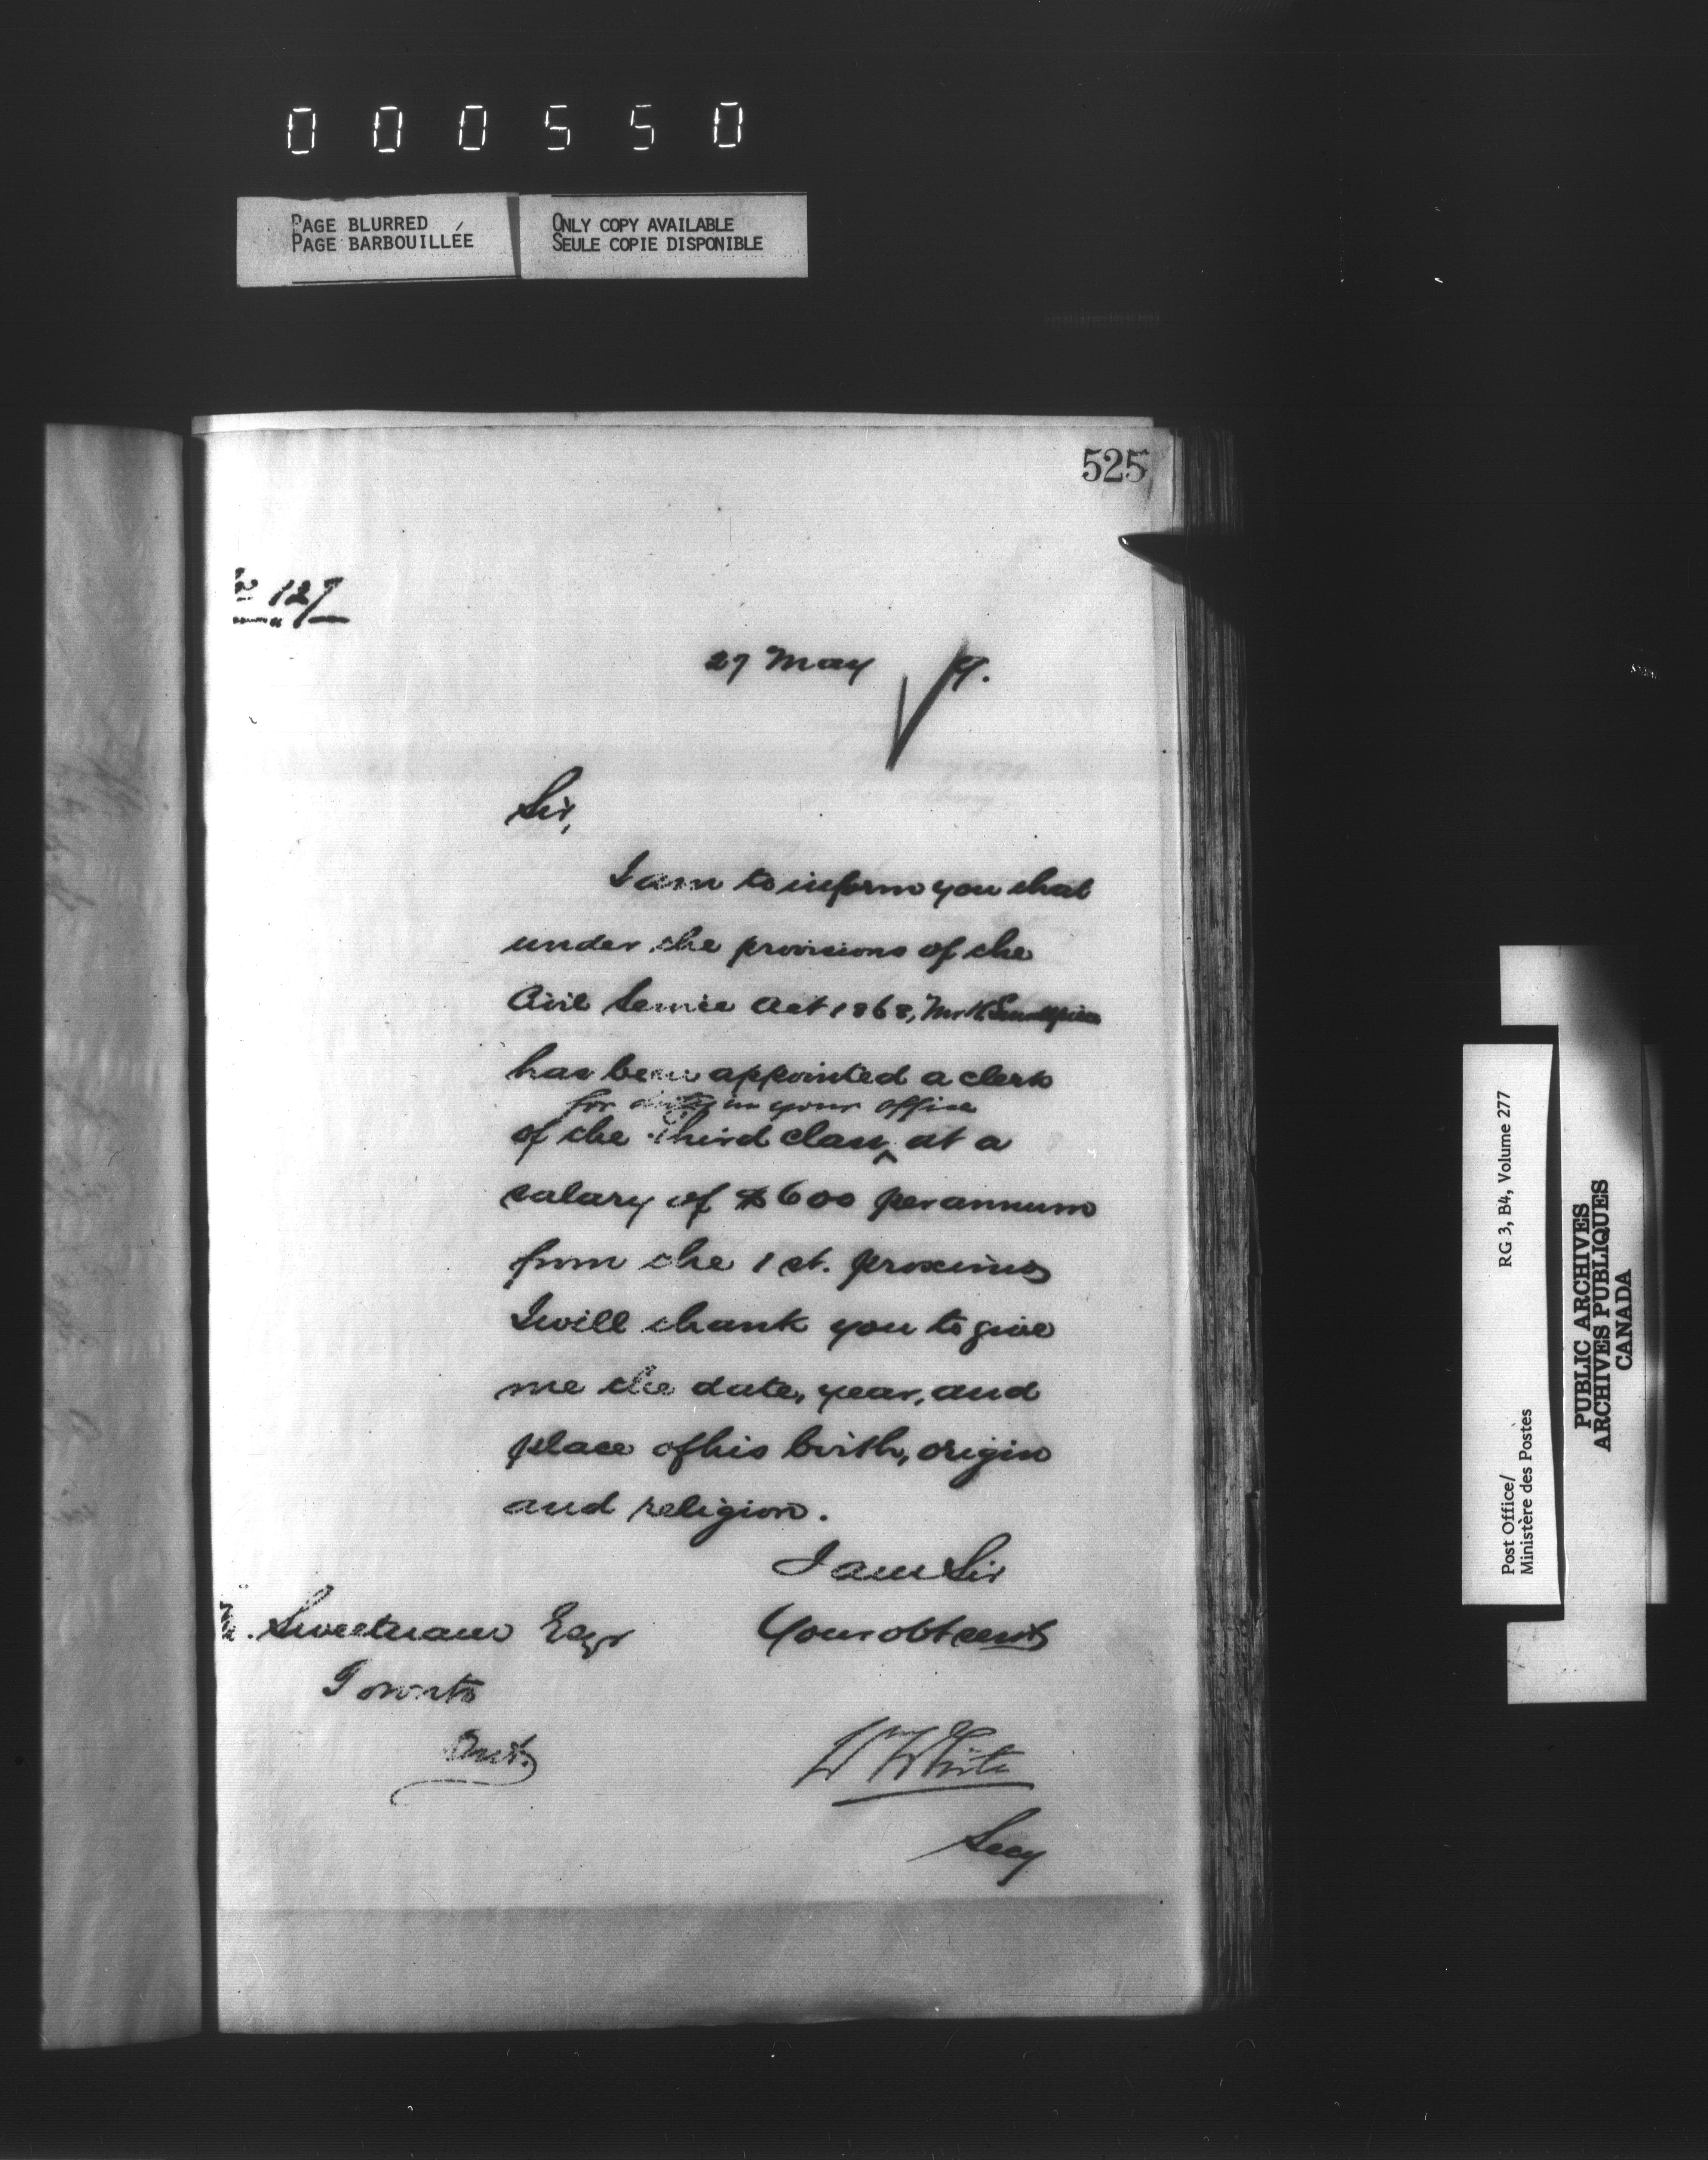 000550
PAGE BLURRED
PAGE BARBOUILLÉE
ONLY COPY AVAILABLE
SEULE COPIE DISPONIBLE
525
No 127
27 May 9.
Sir,
I am to inform you that
under the provisions of the
Civil Service Act 1868, Mr
has been appointed a clerk
for duty in your office
of the third class ‸ at a
salary of $600 per annum
from the 1st. proximo
I will thank you to give
me the date, year, and
place of his birth, origin
and religion.
I am Sir
Your obt servt
Sweetnam Esqr
Toronto
Ont.
W White
Secy
Post Office/
Ministère des Postes
RG 3, B4, Volume 277
PUBLIC ARCHIVES
ARCHIVES PUBLIQUES
CANADA